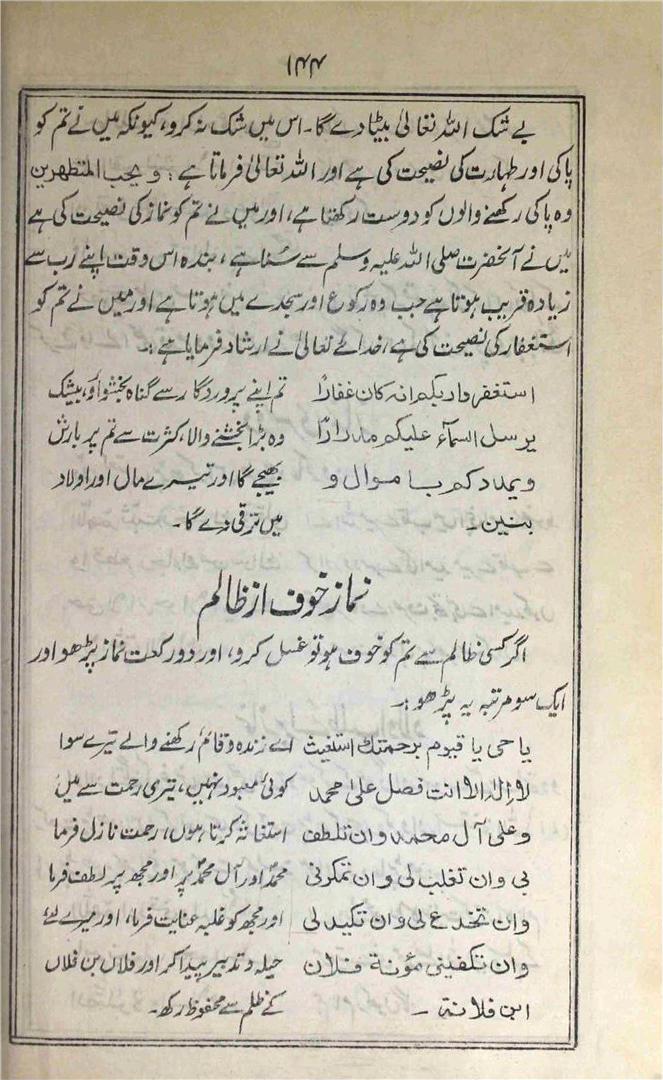 ۱۴۴
بے شک اللہ تعالیٰ بیٹا دے گا۔ اس میں شک نہ کرو، کیونکہ میں نے تم کو
پاکی اور طہارت کی نصیحت کی ہے اور اللہ تعالیٰ فرماتا ہے: و یحب المتطھرین
وہ پاکی رکھنے والوں کو دوست رکھتا ہے، اور میں نے تم کو نماز کی نصیحت کی ہے
میں نے آنحضرت صلی اللہ علیہ وسلم سے سُنا ہے، بندہ اس وقت اپنے رب سے
زیادہ قریب ہوتا ہے جب وہ رکوع اور سجدے میں ہوتا ہے اور میں نے تم کو
استغفار کی نصیحت کی ہے، خدائے تعالیٰ نے ارشاد فرمایا ہے :۔
استغفر وا ربکم انہ کان غفارًا
یرسل السمآء علیکم مدرارًا
ویمدد کم با موال و
بنین۔
تم اپنے پروردگار سے گناہ بخشواؤ، بیشک
وہ بڑا بخشنے والا، کثرت سے تم پر بارش
بھیجے گا اور تیرے مال اور اولاد
میں ترقی دے گا۔
نماز خوف از ظالم
اگر کسی ظالم سے تم کو خوف ہو تو غسل کرو، اور دو رکعت نماز پڑھو اور
ایک سو مرتبہ یہ پڑھو :۔
یا حی یا قیوم برحمتک استغیث
لا الٰہ الا انت فصل علیٰ محمد
وعلی آل محمد وان تلطف
بی وان تغلب لی وان تمکرنی
وان تخدع لی وان تکید لی
وان تکفینی مؤنۃ فلان
ابن فلانۃ ۔
اے زندہ و قائم رکھنے والے تیرے سوا
کوئی معبود نہیں، تیری رحمت سے میں
استغاثہ کرتا ہوں، رحمت نازل فرما
محمدؐ اور آل محمدؐ پر اور مجھ پر لطف فرما
اور مجھ کو غلبہ عنایت فرما، اور میرے لئے
حیلہ و تدبیر پیدا کر اور فلاں بن فلاں
کے ظلم سے محفوظ رکھ۔